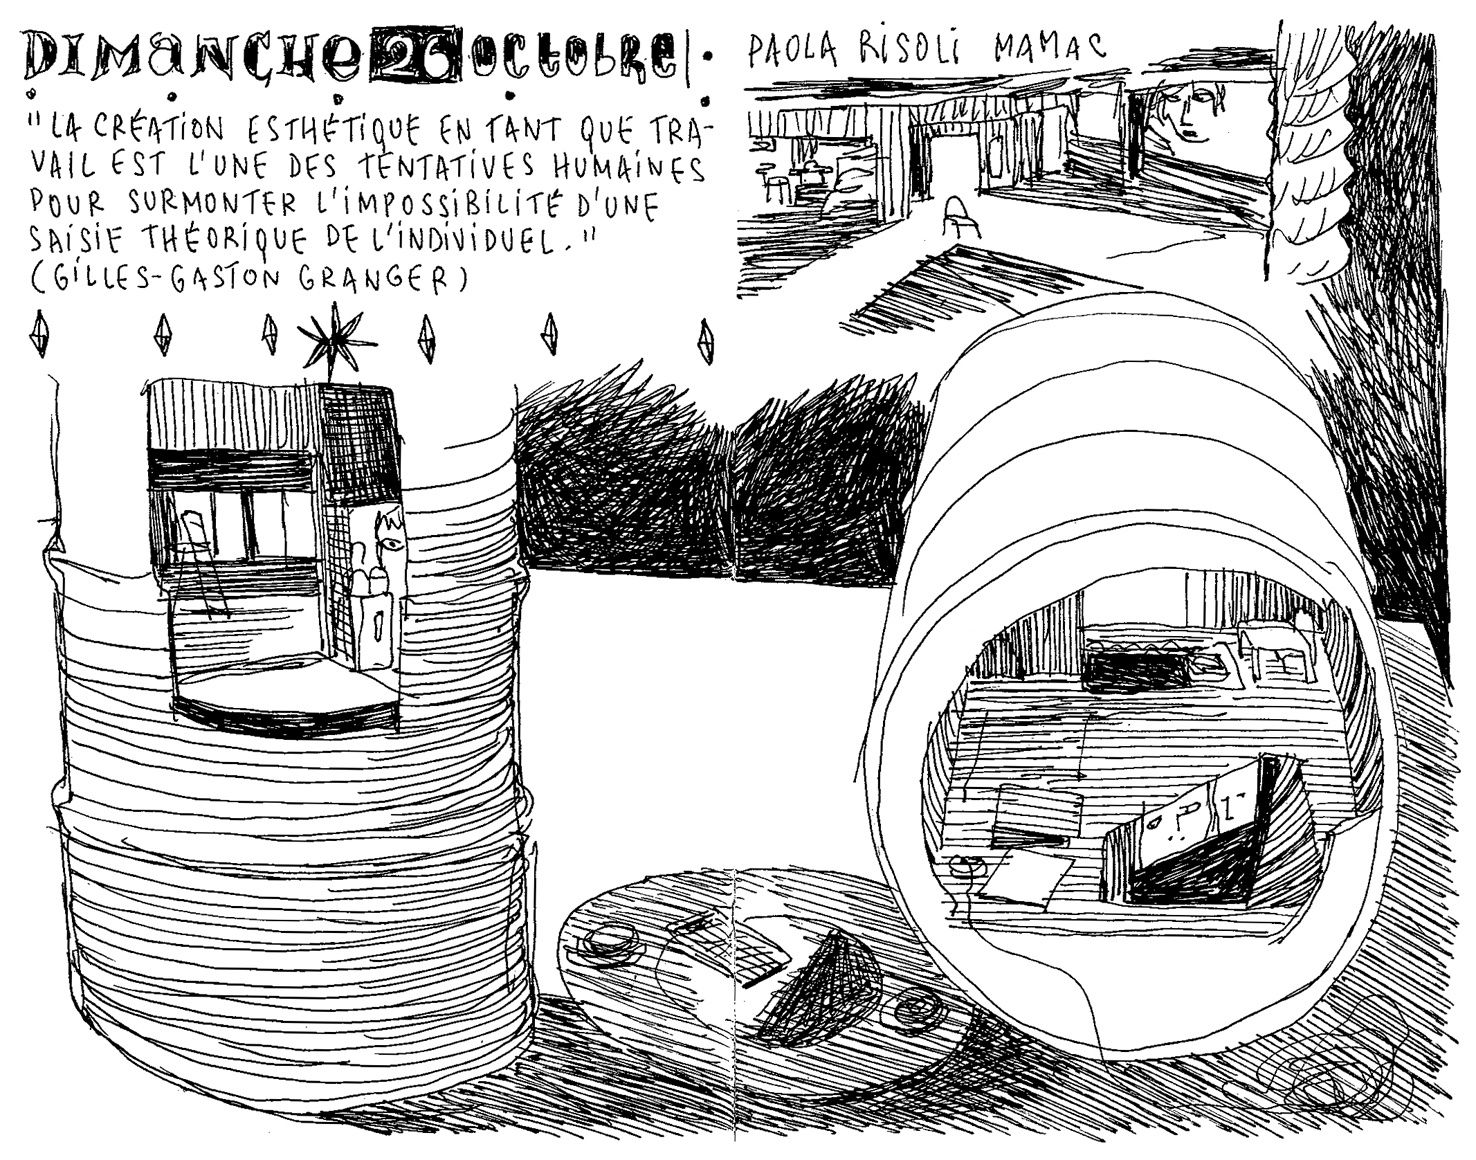 DIMANCHE 26 OCTOBRE.
PAOLA RISOLI MAMAC
"LA CRÉATION ESTHÉTIQUE EN TANT QUE TRA-
VAIL EST L'UNE DES TENTATIVES HUMAINES
POUR SURMONTER L'IMPOSSIBILITÉ D'UNE
SAISIE THÉORIQUE DE L'INDIVIDUEL."
(GILLES-GASTON GRANGER)